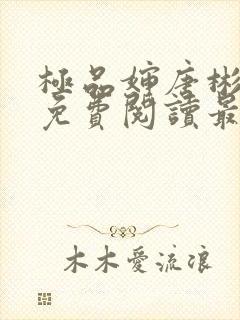 極品嬸唐彬
免費閱讀最
木木愛流浪